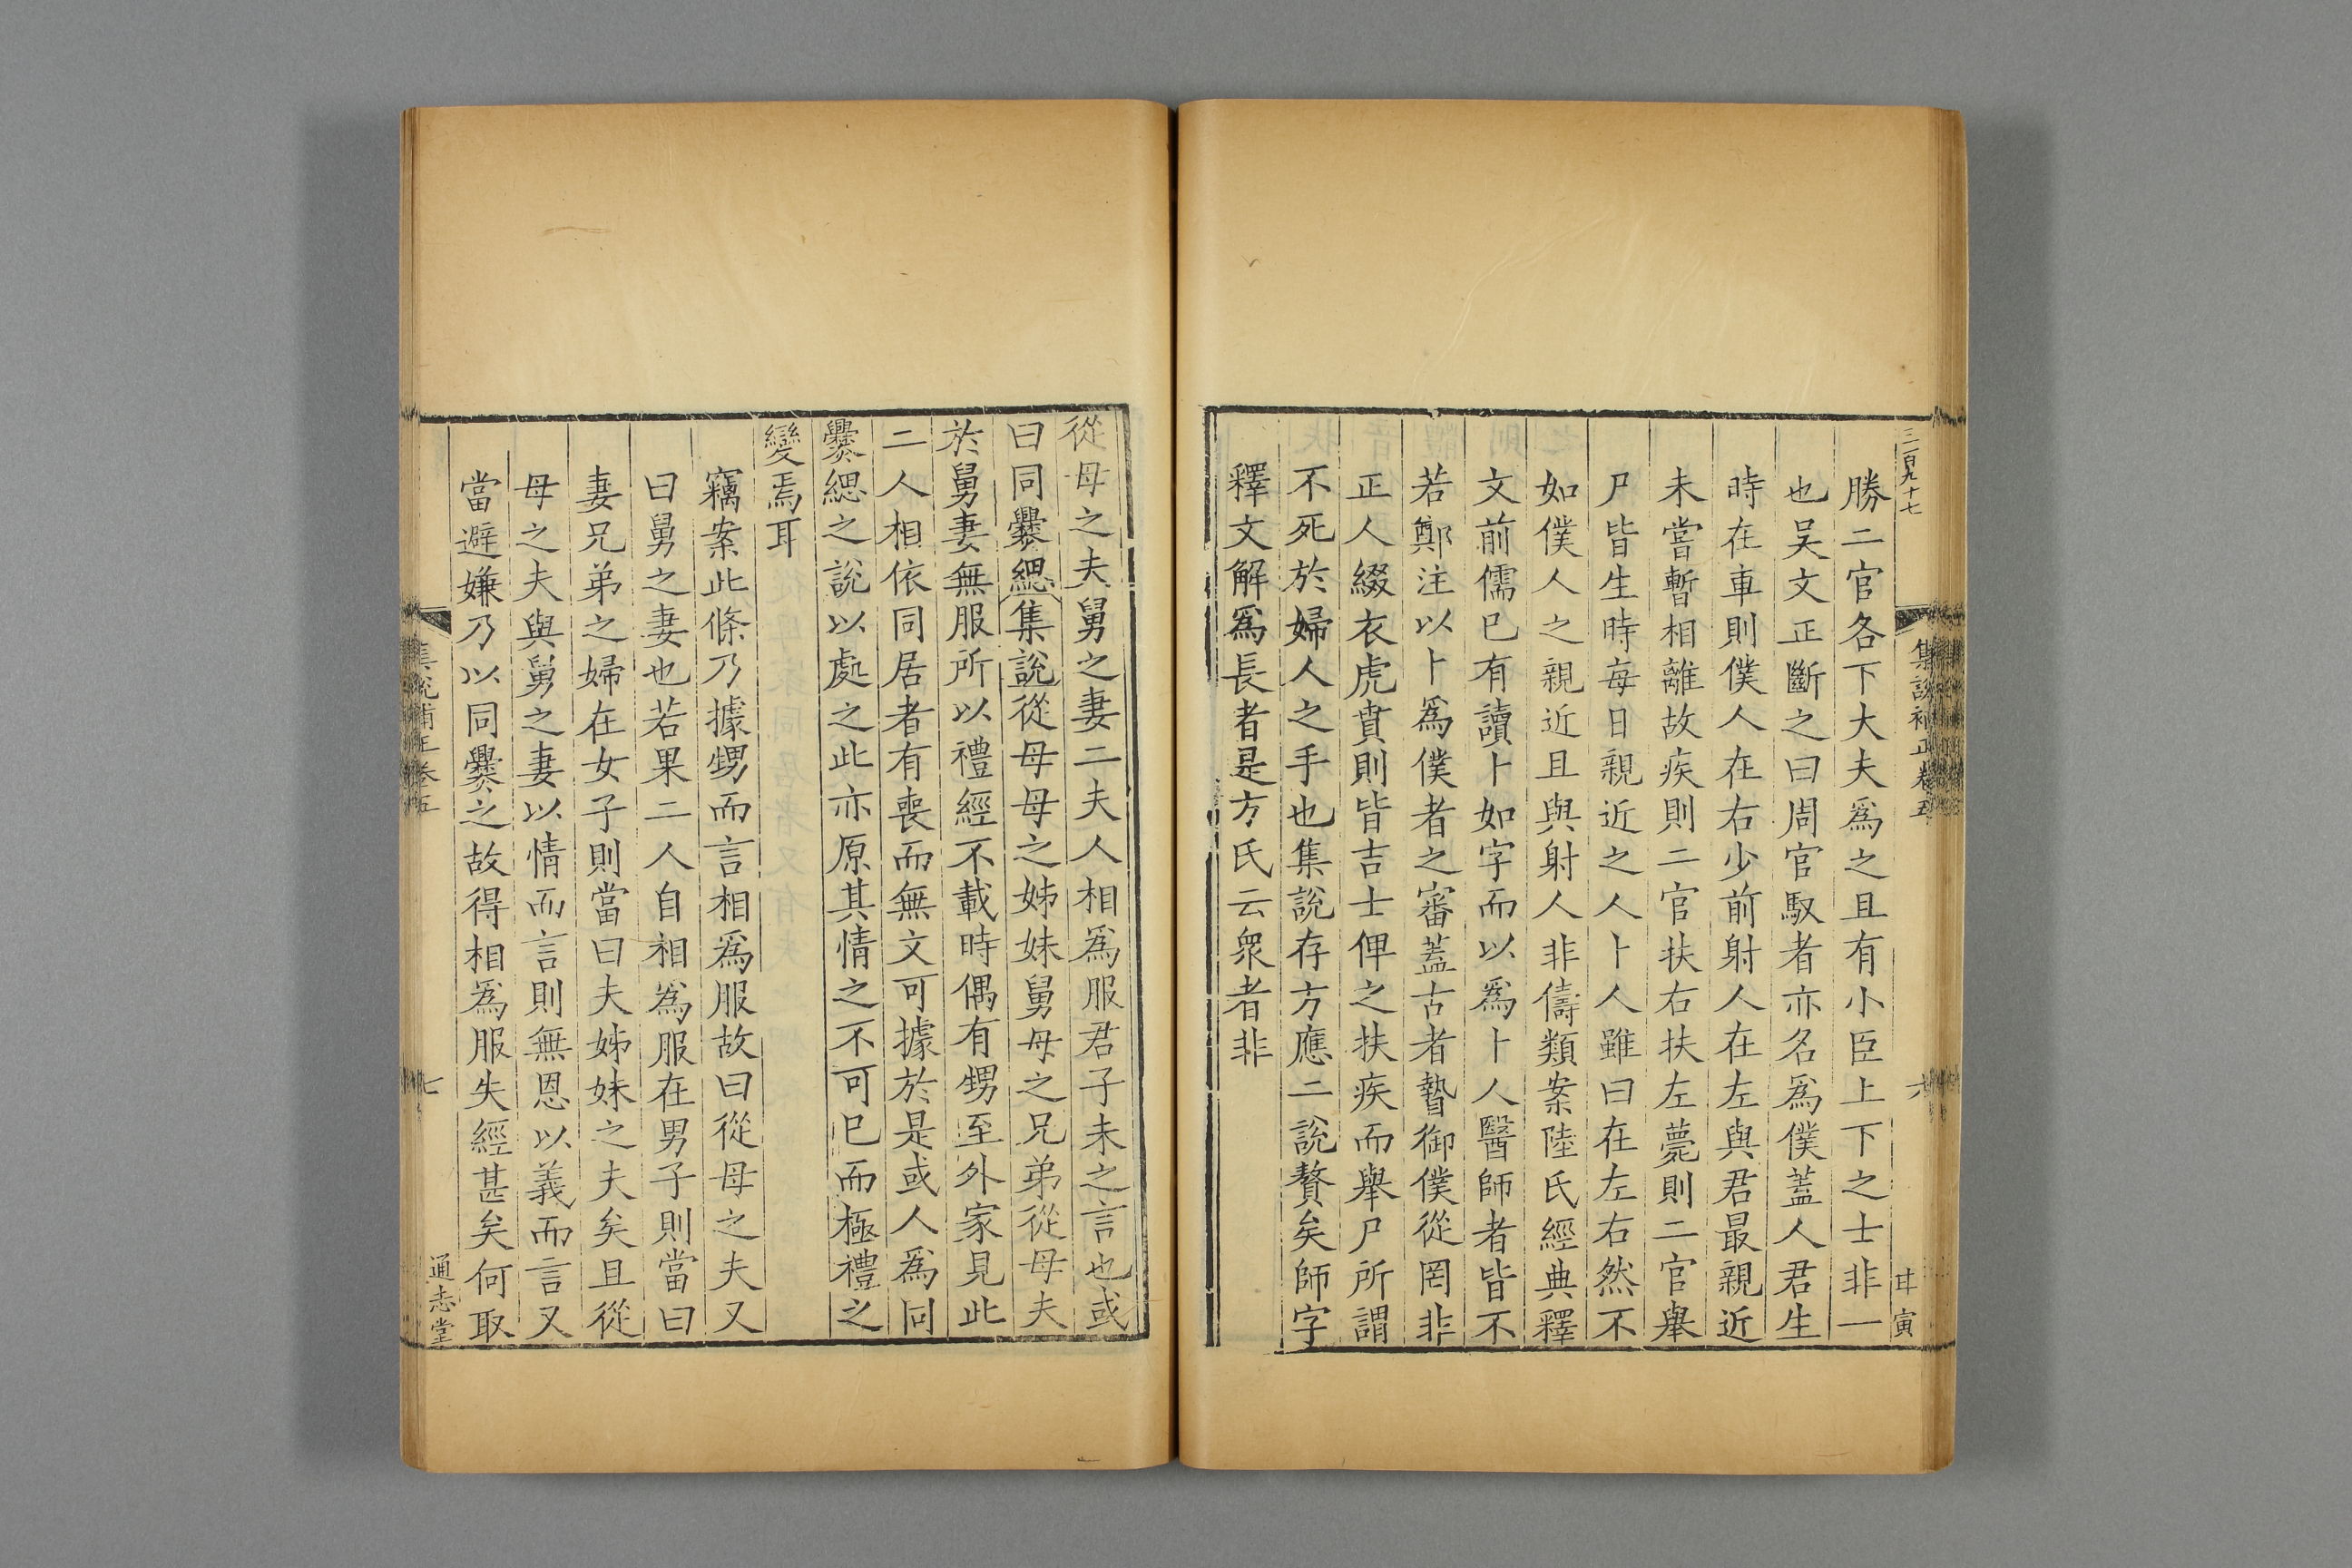 三百九十七
集說補正卷五
六
甘寅
勝二官各下大夫爲之且有小臣上下之士非一
也吳文正斷之曰周官馭者亦名爲僕蓋人君生
時在車則僕人在右少前射人在左與君最親近
未嘗暫相離故疾則二官扶右扶左薨則二官舉
尸皆生時每日親近之人卜人雖曰在左右然不
如僕人之親近且與射人非儔類案陸氏經典釋
文前儒已有讀卜如字而以爲卜人醫師者皆不
若鄭注以卜爲僕者之審蓋古者暬御僕從罔非
正人綴衣虎賁則皆吉士俾之扶疾而舉尸所謂
不死於婦人之手也集說存方應二說贅矣師字
釋文解爲長者是方氏云衆者非
從母之夫舅之妻二夫人相爲服君子未之言也或
曰同爨緦集說從母母之姊妹舅母之兄弟從母夫
於舅妻無服所以禮經不載時偶有甥至外家見此
二人相依同居者有喪而無文可據於是或人爲同
爨緦之說以處之此亦原其情之不可已而極禮之
變焉耳
竊案此條乃據甥而言相爲服故曰從母之夫又
曰舅之妻也若果二人自相爲服在男子則當曰
妻兄弟之婦在女子則當曰夫姊妹之夫矣且從
母之夫與舅之妻以情而言則無恩以義而言又
當避嫌乃以同爨之故得相爲服失經甚矣何取
集說補正卷五
七
通志堂